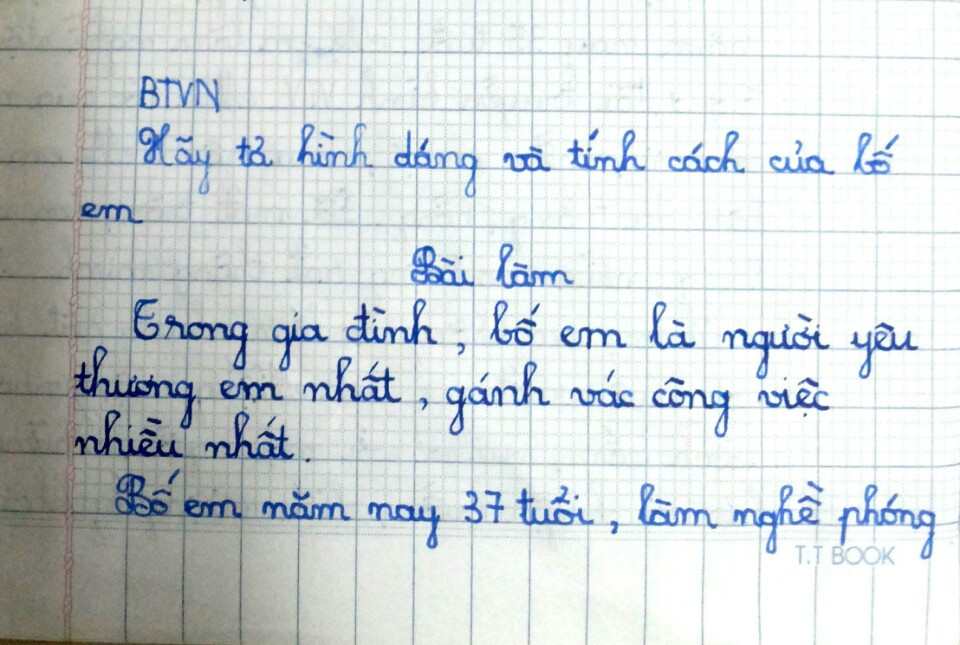 BTVN
Hãy tả hình dáng và tính cách của bố
em
Bài làm
Trong gia đình, bố em là người yêu
thương em nhất, gánh vác công việc
nhiều nhất.
Bố em năm nay 37 tuổi, làm nghề phóng
T.T BOOK